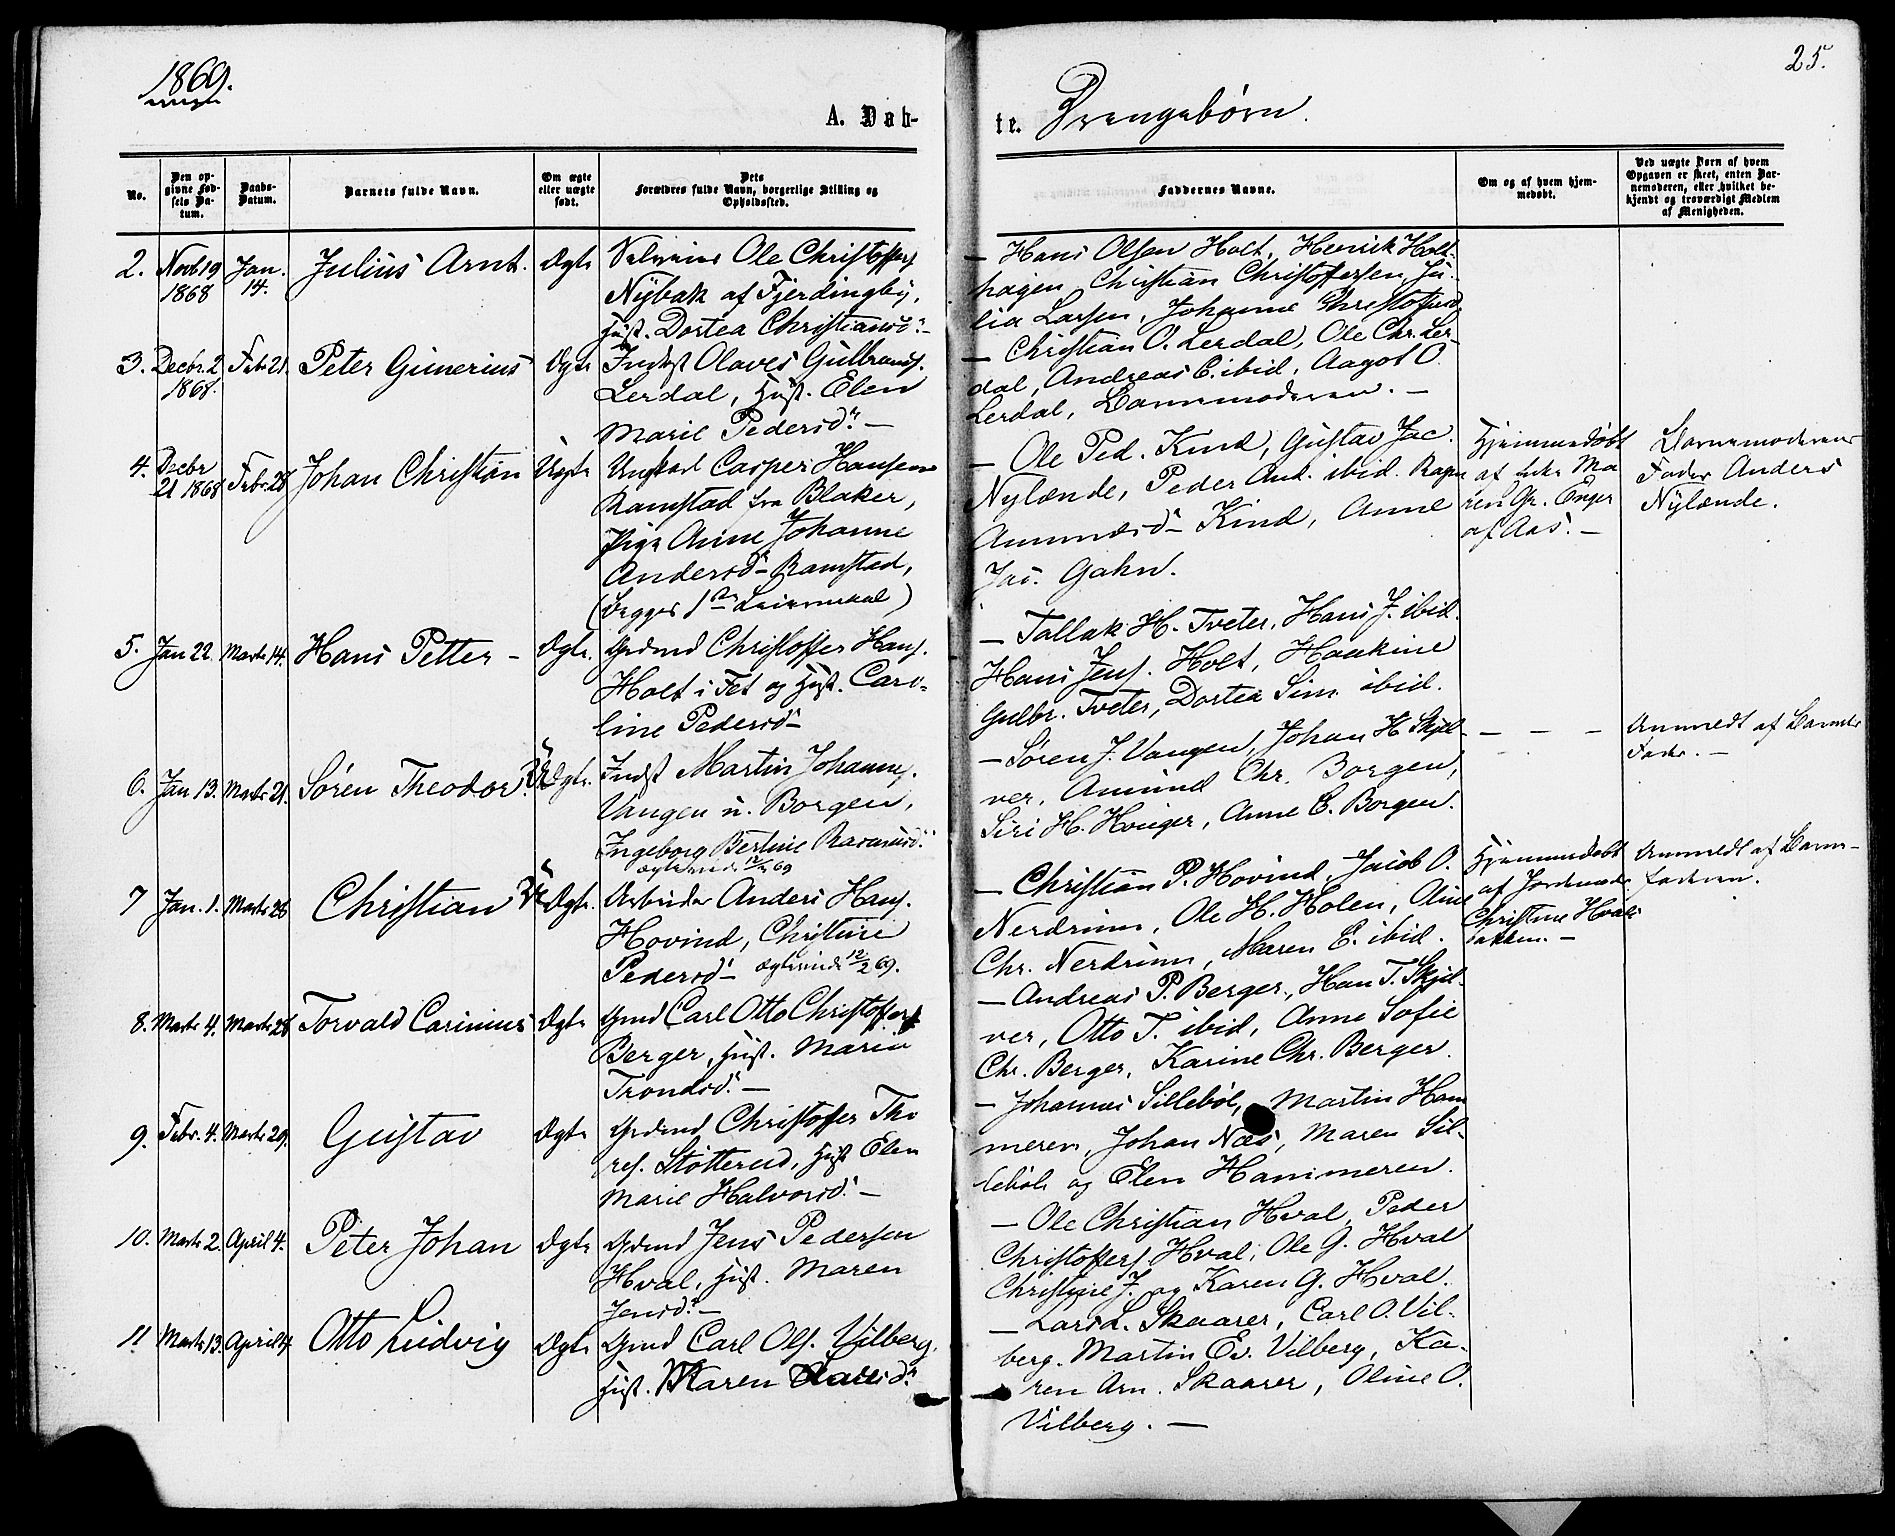 1869.
25.
A. Døb-
te. Drengebørn.
No.
Den op-
givne Fød-
sels Da-
tum.
Daabs-
Datum.
Barnets fulde Navn.
Om ægte
eller uægte
født.
Dets
Forældres fulde Navn, borgerlige Stilling og
Opholdssted.
Faddernes Navne.
Om og af hvem hjem-
medøbt.
Ved uægte Børn af hvem
Opgaven er skeet, enten Bar-
nemoderen, eller hvilket be-
kjendt og troværdigt Medlem
af Menigheden.
2. Novb 19 Jan. Julius Arnt. Ægte Ole Christoffers.
1868 14. Nybak af Fjerdingby,
Hust. Dortea Christiansd. –
– Hans Olsen Holt, Henrik Holt-
hagen, Christian Christoffersen, Ju-
lia Larsen, Johanne Christoffersd
3. Decbr. 2 Febr 21. Peter Gunerius Ægte Indst Olaves Gulbrands.
1868. Lerdal, Hust. Elen
Marie Pedersd. –
– Christian O. Lerdal, Ole Chr. Ler-
dal, Andreas C. ibid, Aagot O.
Lerdal, Barnemoderen. –
4. Decbr Febr. 28 Johan Christian Uægte Ungkarl Casper Hansen
21 1868 Ramstad fra Blaker,
Pige Anne Johanne
Andersd – Ramstad,
(begges 1ste Leiermaal)
– Ole Ped. Kind, Gustav Jac.
Nylænde, Peder And. ibid.
Kind, Anne
Jac. Gahn.
Hjemmedøbt
af
ren Gr. Enger
af Aas. –
Barnemoderens
Fader Anders
Nylænde.
5. Jan 22. Marts 14. Hans Petter – Ægte. Grdmd Christoffer Hans.
Holt i Fet og Hust. Caro-
line Pedersd –
– Tallak H. Tveter, Hans J. ibid.
Hans Jens. Holt, Haakine
Gulbr. Tveter, Dortea Sim. ibid.
6. Jan 13. Marts 21. Søren Theodor. Ægte. Indst Martin Johannes.
Vangen u. Borgen,
Ingeborg Bertine Rasmusd.
12/2 69
– Søren J. Vangen, Johan H Skjel-
ver, Amund Chr. Borgen,
Siri H. Huiger, Anne E. Borgen.
– – –
Anmeldt af Barnets
Fader. –
7 Jan. 1. Marts 28 Christian Ægte. Arbeider Anders Hans.
Hovind, Christine
Pedersd – 12/2 69.
– Christian P. Hovind, Jacob O.
Nerdrum, Ole H. Holen, Oline
Chr. Nerdrum, Maren E. ibid.
Hjemmedøbt
af Jordemoder
Christine Hvals
bakken. –
Anmeldt af Barne-
faderen.
8. Marts 4. Marts 28 Torvald Carinius Ægte Grmd Carl Otto Christoffers
Berger, Hust. Maria
Trondsd. –
– Andreas P. Berger, Han T. Skjel-
ver, Otto T. ibid, Anne Sofie
Chr. Berger, Karine Chr. Berger.
9. Febr. 4. Marts 29. Gustav Ægte Grdmd Christoffer Tho
res. Støtterud, Hust Elen
Marie Halvorsd. –
– Johannes Sillebøl, Martin Ham
meren, Johan Næs, Maren Sil-
lebøl og Elen Hammeren.
10. Marts 2. April 4. Peter Johan Ægte Grdmd Jens Pedersen
Hval, Hust. Maren
Jensd. –
– Ole Christian Hval, Peder
Christoffers. Hval, Ole G. Hval
Christine J. og Karen G. Hval.
11 Marts 13. April 4. Otto Ludvig Ægte Grmd Carl Ols. Vilberg,
Hust. Karen
– Lars L. Skaarer, Carl O. Vil-
berg. Martin Ev. Vilberg, Ka-
ren Arn. Skaarer, Oline O.
Vilberg. –